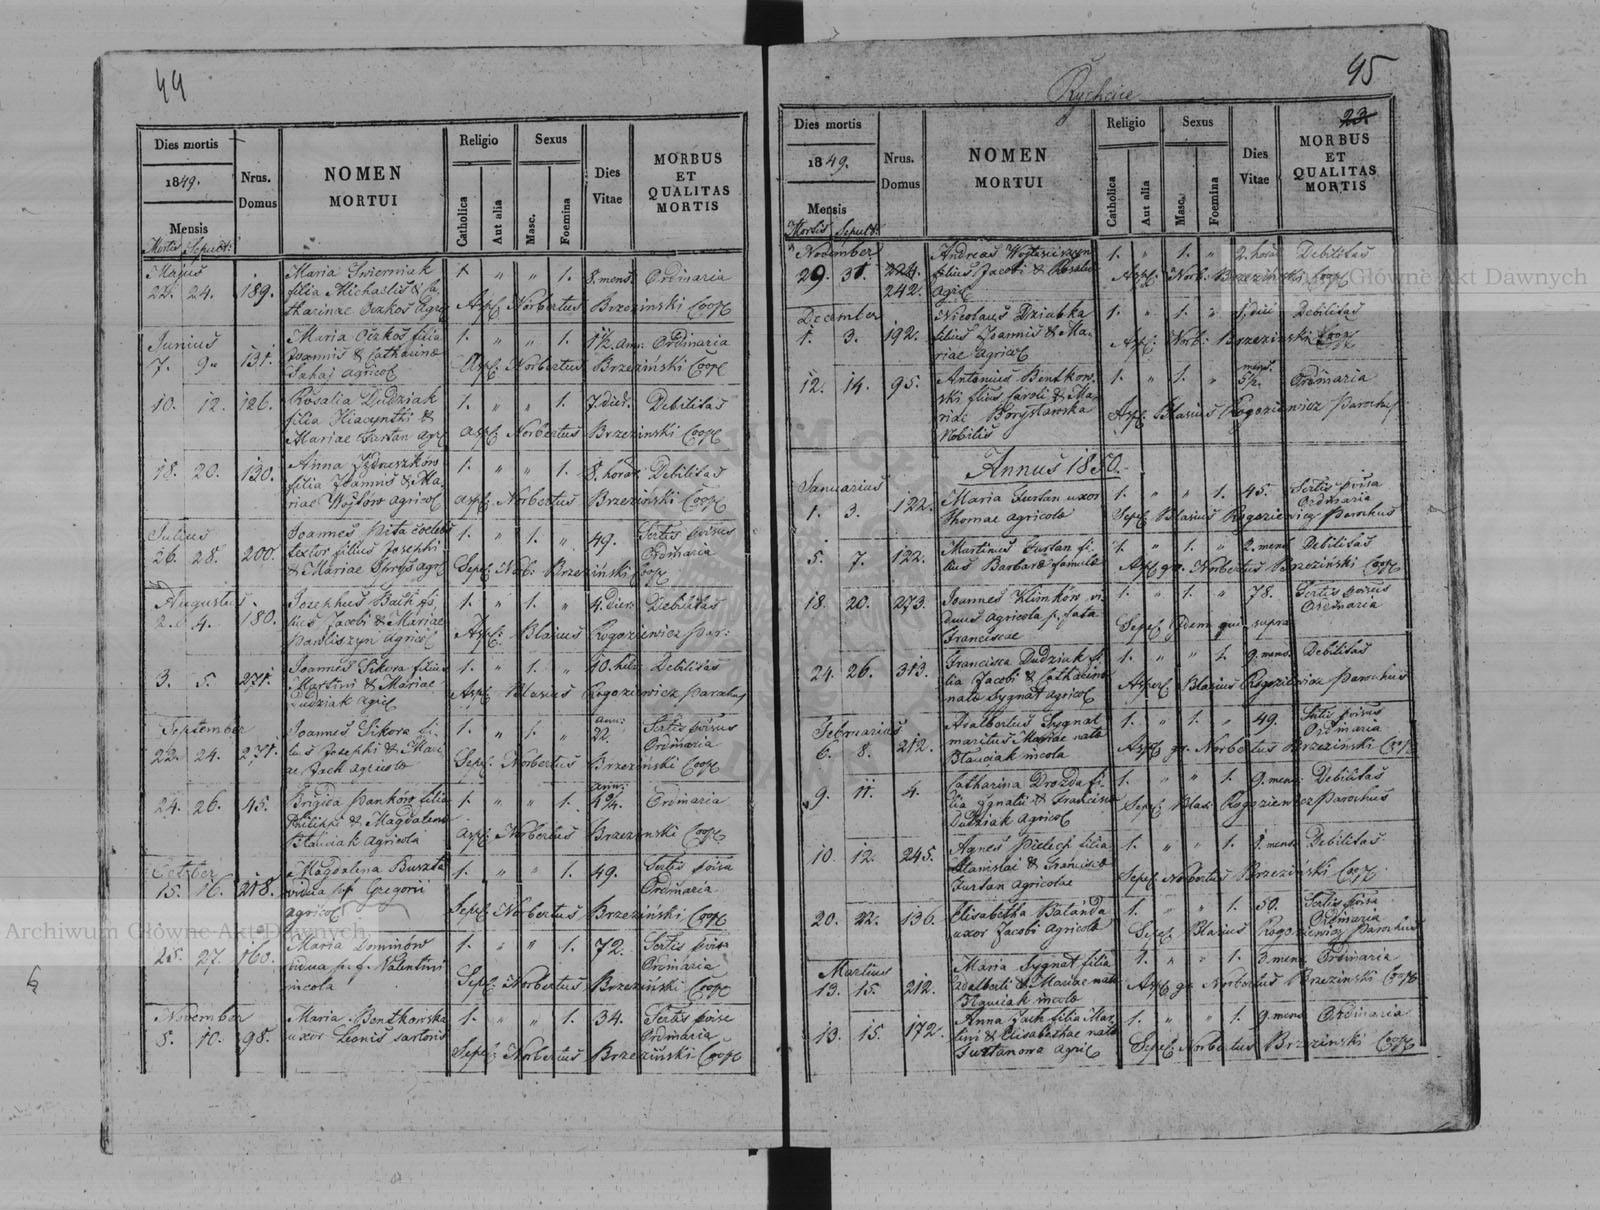 44
Dies mortis
1849.
Mensis
Mortis Sepult:
Nrus.
Domus
NOMEN
MORTUI
Religio
Catholica
Aut alia
Sexus
Masc.
Foemina
Dies
Vitae
MORBUS
ET
QUALITAS
MORTIS
Majus
22. 24. 189.
Maria Swierniak
filia Michaelis & Ca
tharinae Oczkos Agric
1. " " 1. 8. mens. Ordinaria
Asp. Norbertus Brzezinski Coop
Junius
7. 9. 131.
Maria Oczkos filia
Joannis & Catharinae
Sahaj agricol
1. " " 1. 1½. ann: Ordinaria
Asp. Norbertus Brzeziński Coop
10. 12. 126.
Rosalia Dudziak
filia Hiacynthi &
Mariae Furtan agr
1. " " 1. 7. dier. Debilitas
asp. Norbertus Brzezinski Coop
18. 20. 130.
Anna
filia Joannis & Ma
riae Wojtów agricol
1. " " 1. 8. horae Debilitas
asp. Norbertus Brzezinski Coop
Julius
26. 28. 200.
Joannes Pita coelebs
textor filius Josephi
& Mariae agr
1. " 1. " 49. Sertis provisus
Ordinaria
Sepel. Norb: Brzeziński Coop
Augustus
2. 4. 180.
Josephus Bach fi
lius Jacobi & Mariae
Pawliszyn agricol
1. " 1. " 4. dier. Debilitas
Asp: Blasius Rogoziewicz Par:
3. 5. 271.
Joannes Sikora filius
Martini & Mariae
Dudziak agric
1. " 1. " 10. Debilitas
Asp. Blasius Rogoziewicz Parochus
September
22. 24. 271.
Joannes Sikora fi
lius Josephi & Mari
ae Jach agricola
1. " 1. " ann: 22. Sertis provisus
Ordinaria
Sepel. Norbertus Brzeziński Coop
24. 26. 45.
Brigida Panków filia
Philippi & Magdalena
Btauciak agricola
1. " " 1. ann: Ordinaria
asp: Norbertus Brzezinski Coop
October
15. 16. 218.
Magdalena Buszta
vidua p. f. Gregorii
agricol
1. " " 1. 49. Sertis provisa
Ordinaria
Sepel. Norbertus Brzeziński Coop
25. 27. 160.
Maria Dominów
vidua p. f. Valentini
incola
1. " " 1. 72. Sertis provisa
Ordinaria
Sepel. Norbertus Brzeziński Coop
November
8. 10. 98.
Maria Bentkowska
uxor Leonis sartoris
1. " " 1. 34. Sertis provisa
Ordinaria
Sepel. Norbertus Brzeziński Coop
Rychcice
45
23.
Dies mortis
1849.
Mensis
Mortis Sepult:
Nrus.
Domus
NOMEN
MORTUI
Religio
Catholica
Aut alia
Sexus
Masc.
Foemina
Dies
Vitae
MORBUS
ET
QUALITAS
MORTIS
November
29. 31. 224.
242.
Andreas Wojtasiszyn
filius Jacobi & Rosaliae
agric
1. " 1. " 2. horae Debilitas
Asp. Norb: Brzezinski Coop
December
1. 3. 192.
Nicolaus Dziabka
filius Joannis & Ma
riae agricol
1. " 1. " 1. diei Debilitas
Asp. Norb: Brzezinski Coop
12. 14. 95.
Antonius Bentkow
ski filius Caroli & Ma
riae Borysławska
Nobilis
1. " 1. " mens. 5½. Ordinaria
Asp. Blasius Rogoziewicz Parochus
Annus 1850.
Januarius
1. 3. 122.
Maria Furtan uxor
Thomae agricola
1. " " 1. 45. Sertis provisa
Ordinaria
Sepel. Blasius Rogoziewicz Parochus
5. 7. 122.
Martinus Furtan fi
lius Barbarae famulae
1. " 1. " 2. mens. Debilitas
Asp. gr. Norbertus Brzeziński Coop
18. 20. 273.
Joannes Klimków vi
duus agricola p. fata
Franciscae
1. " 1. " 78. Sertis provisus
Ordinaria
Sepel. idem qui supra
24. 26. 313.
Francisca Dudziak fi
lia Jacobi & Catharina
nata Sygnat agricol
1. " " 1. 9. mens. Debilitas
Aspel Blasius Rogoziewicz Parochus
Februarius
6. 8. 212.
Adalbertus Sygnat
maritus Mariae nata
Btauciak incola
1. " 1. " 49. Sertis provisus
Ordinaria
Asp. gr. Norbertus Brzezinski Coop
9. 11. 4.
Catharina Drozda fi
lia Ignatii & Francisca
Dudziak agricol
1. " " 1. 9. mens. Debilitas
Sepel. Blas: Rogoziewicz Parochus
10. 12. 245.
Agnes Pielech filia
Stanislai & Franciscae
Furtan agricolae
1. " " 1. 1. mens. Debilitas
Sepel. Norbertus Brzeziński Coop.
20. 22. 136.
Elisabetha Bałanda
uxor Jacobi agricola
1. " " 1. 50. Sertis provisa
Ordinaria
Sepel. Blasius Rogoziewicz Parochus
Martius
13. 15. 212.
Maria Sygnat filia
Adalberti & Mariae nata
Btauciak incola
1. " " 1. 3. mens. Ordinaria
Asp. gr. Norbertus Brzezinski Coop
13. 15. 172.
Anna Jach filia Mar
tini & Elisabethae nata
Furtanowa agric
1. " " 1. 9. mens. Ordinaria
Sepel. Norbertus Brzezinski Coop
Archiwum Główne Akt Dawnych
Archiwum Główne Akt Dawnych